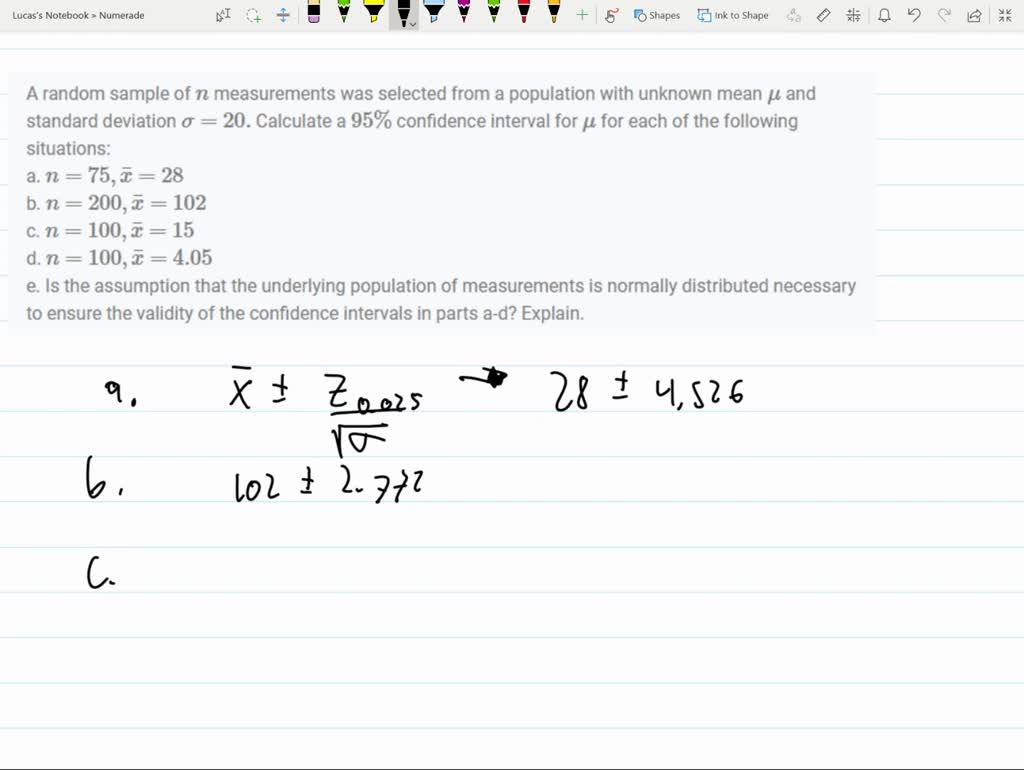 Lucas's Notebook > Numerade
Shapes
Ink to Shape
A random sample of n measurements was selected from a population with unknown mean μ and
standard deviation σ = 20. Calculate a 95% confidence interval for μ for each of the following
situations:
a. n = 75, x̄ = 28
b. n = 200, x̄ = 102
c. n = 100, x̄ = 15
d. n = 100, x̄ = 4.05
e. Is the assumption that the underlying population of measurements is normally distributed necessary
to ensure the validity of the confidence intervals in parts a-d? Explain.
a. x̄ ± Z0.025/√σ → 28 ± 4,526
b. 102 ± 2.772
c.